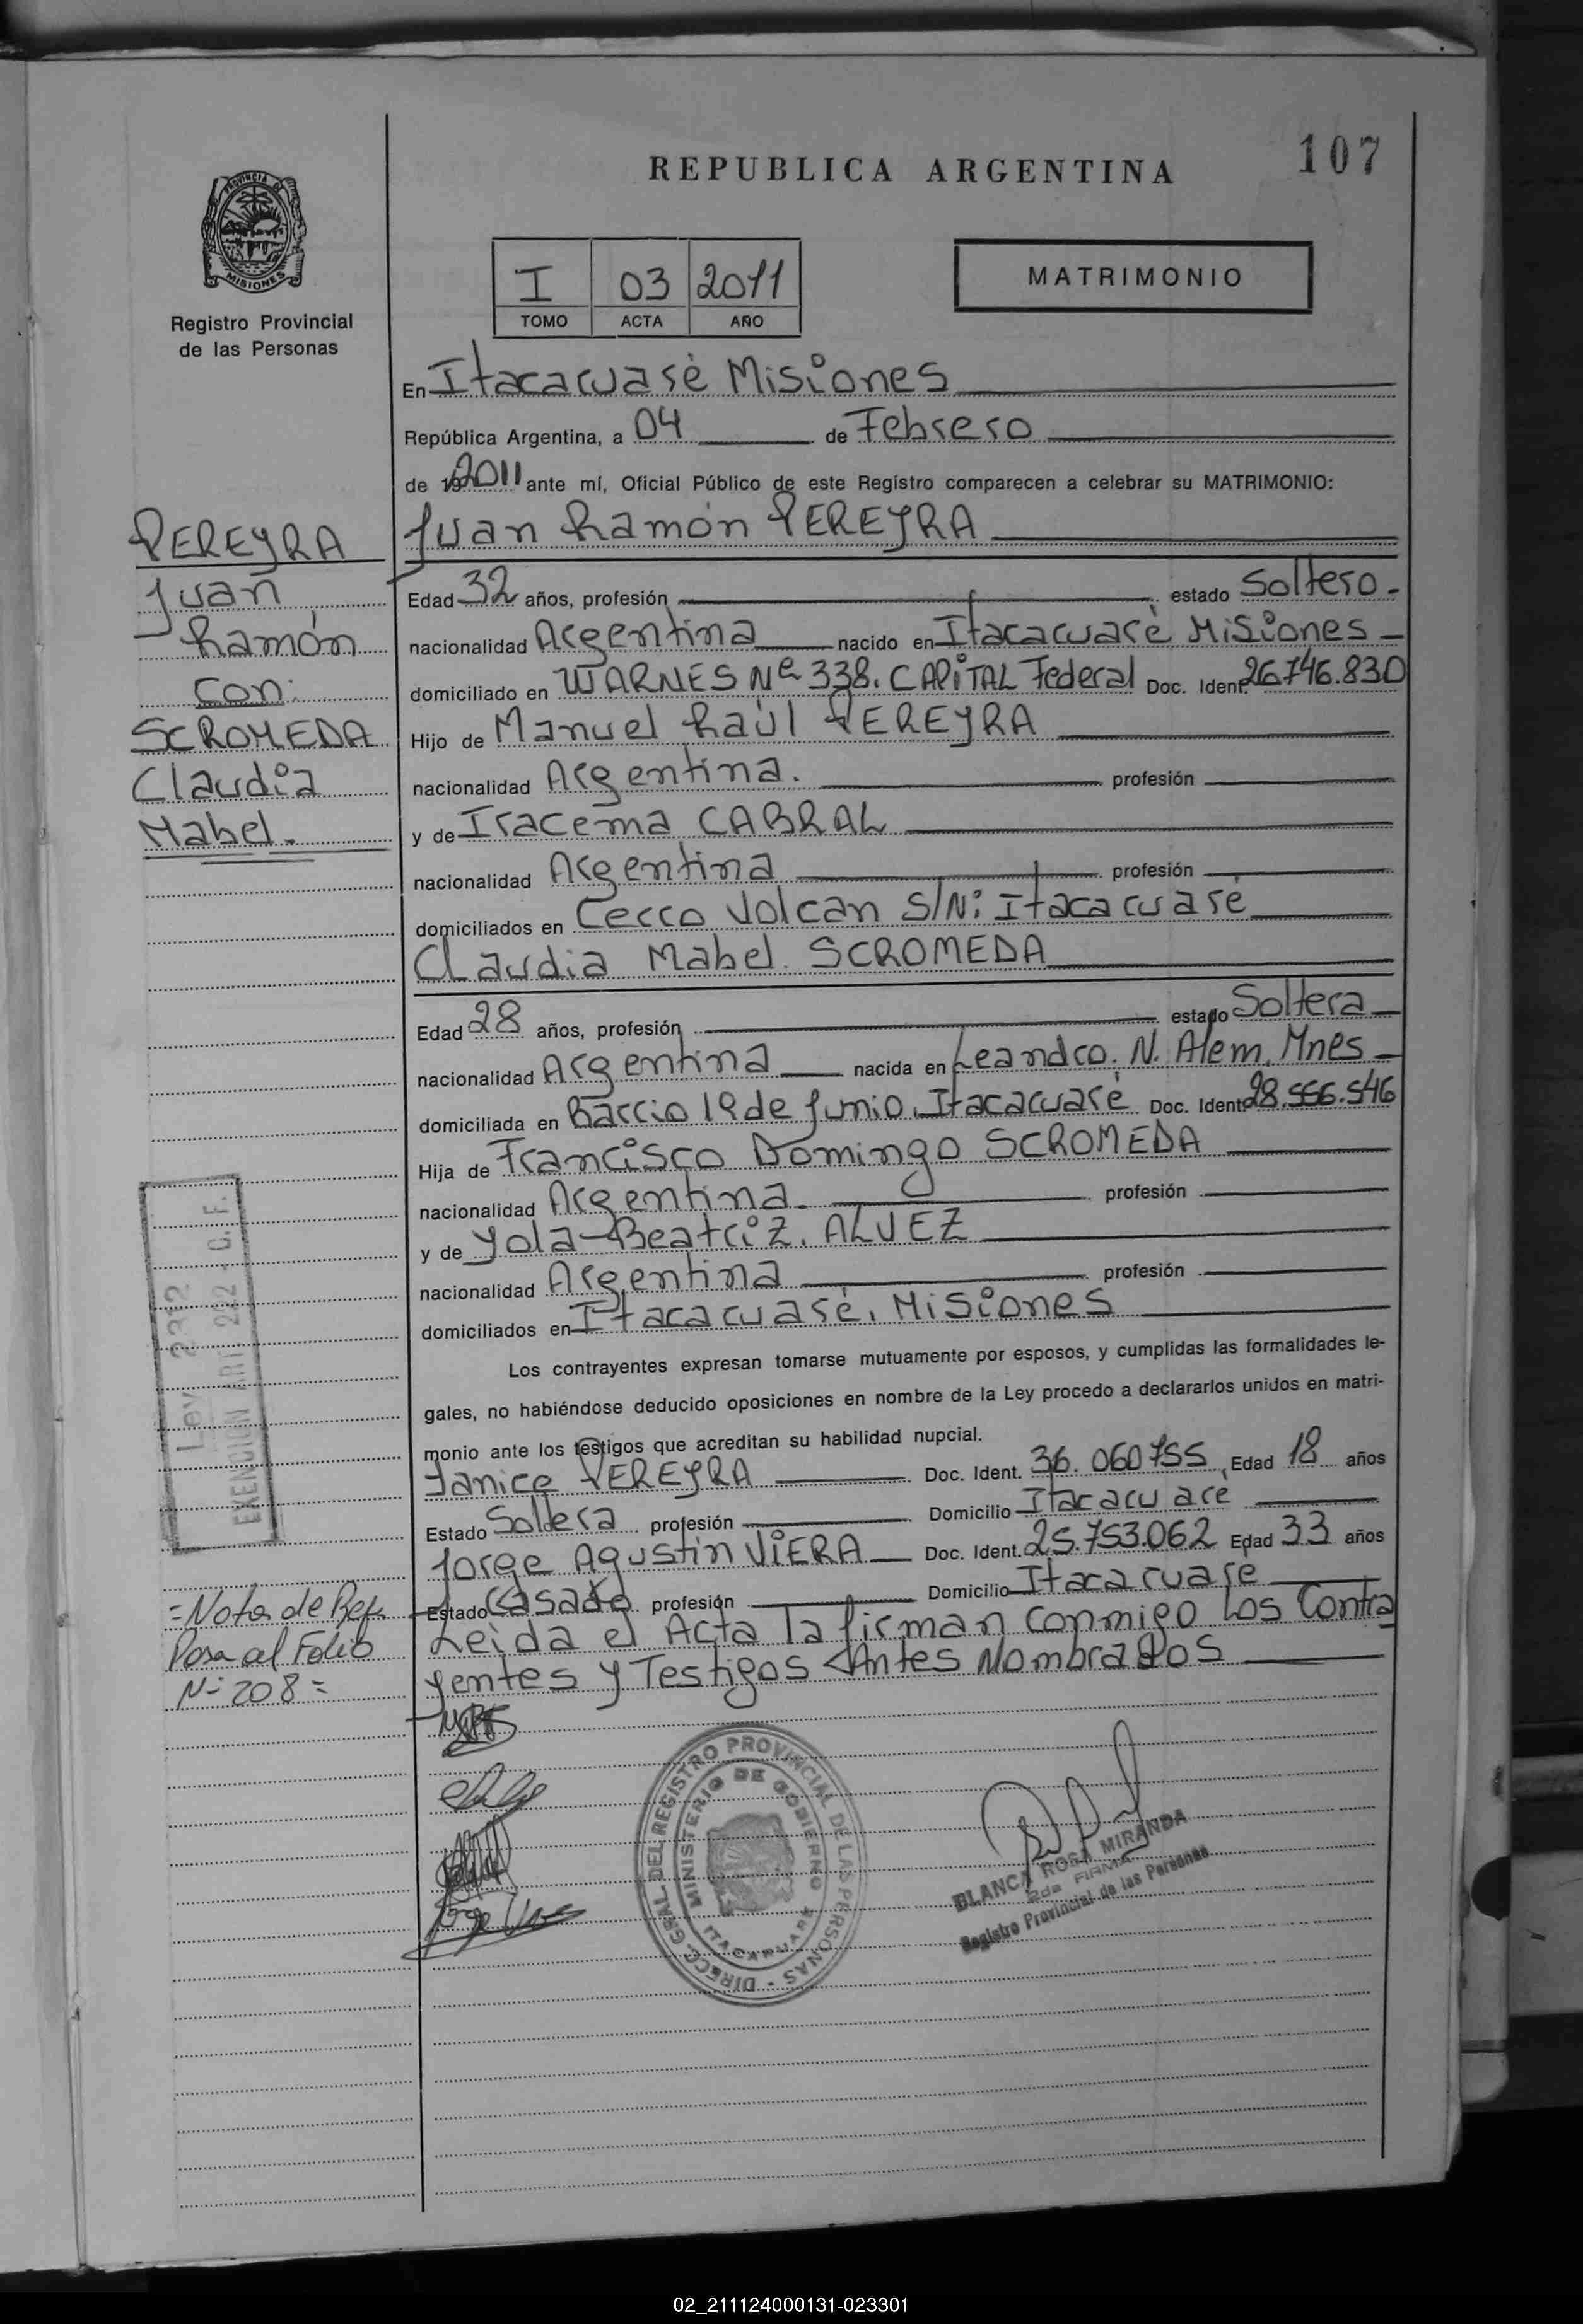 107
REPUBLICA ARGENTINA
PROVINCIA DE
MISIONES
Registro Provincial
de las Personas
I 03 2011
TOMO ACTA AÑO
MATRIMONIO
En Itacacuaré Misiones
República Argentina, a 04 de Febrero
de 192011 ante mí, Oficial Público de este Registro comparecen a celebrar su MATRIMONIO:
Juan Ramón PEREYRA
PEREYRA
Juan
Ramón
con:
SCROMEDA
Claudia
Mabel.
Edad 32 años, profesión estado Soltero.
nacionalidad Argentina nacido en Itacacuaré, Misiones
domiciliado en WARNES Nº 338. CAPITAL Federal Doc. Ident. 26.746.830
Hijo de Manuel Raúl PEREYRA
nacionalidad Argentina. profesión
y de Iracema CABRAL
nacionalidad Argentina profesión
domiciliados en Cerro Volcan S/N: Itacacuaré
Claudia Mabel. SCROMEDA
Edad 28 años, profesión estado Soltera
nacionalidad Argentina nacida en Leandro. N. Alem. Mnes
domiciliada en Barrio 19 de Junio. Itacacuaré Doc. Ident. 28.556.546
Hija de Francisco Domingo SCROMEDA
nacionalidad Argentina. profesión
y de Yola Beatriz. ALVEZ
nacionalidad Argentina profesión
domiciliados en Itacacuaré. Misiones
Los contrayentes expresan tomarse mutuamente por esposos, y cumplidas las formalidades le-
gales, no habiéndose deducido oposiciones en nombre de la Ley procedo a declararlos unidos en matri-
monio ante los testigos que acreditan su habilidad nupcial.
Janice PEREYRA Doc. Ident. 36.060755 Edad 18 años
Estado Soltera profesión Domicilio Itacacuare
Jorge Agustin VIERA Doc. Ident. 25.753.062 Edad 33 años
Estado Casado profesión Domicilio Itacacuare
Leida el Acta la firman conmigo los Contra
yentes y Testigos Antes Nombrados
Ley 2312
EXENCION ART. 222 - C.F.
=Nota de Ref.
Pasa al Folio
Nº 208=
DIRECC. GRAL. DEL REGISTRO PROVINCIAL DE LAS PERSONAS
MINISTERIO DE GOBIERNO
ITACARUARE
BLANCA ROSA MIRANDA
2da FIRMA
Registro Provincial de las Personas
02_211124000131-023301